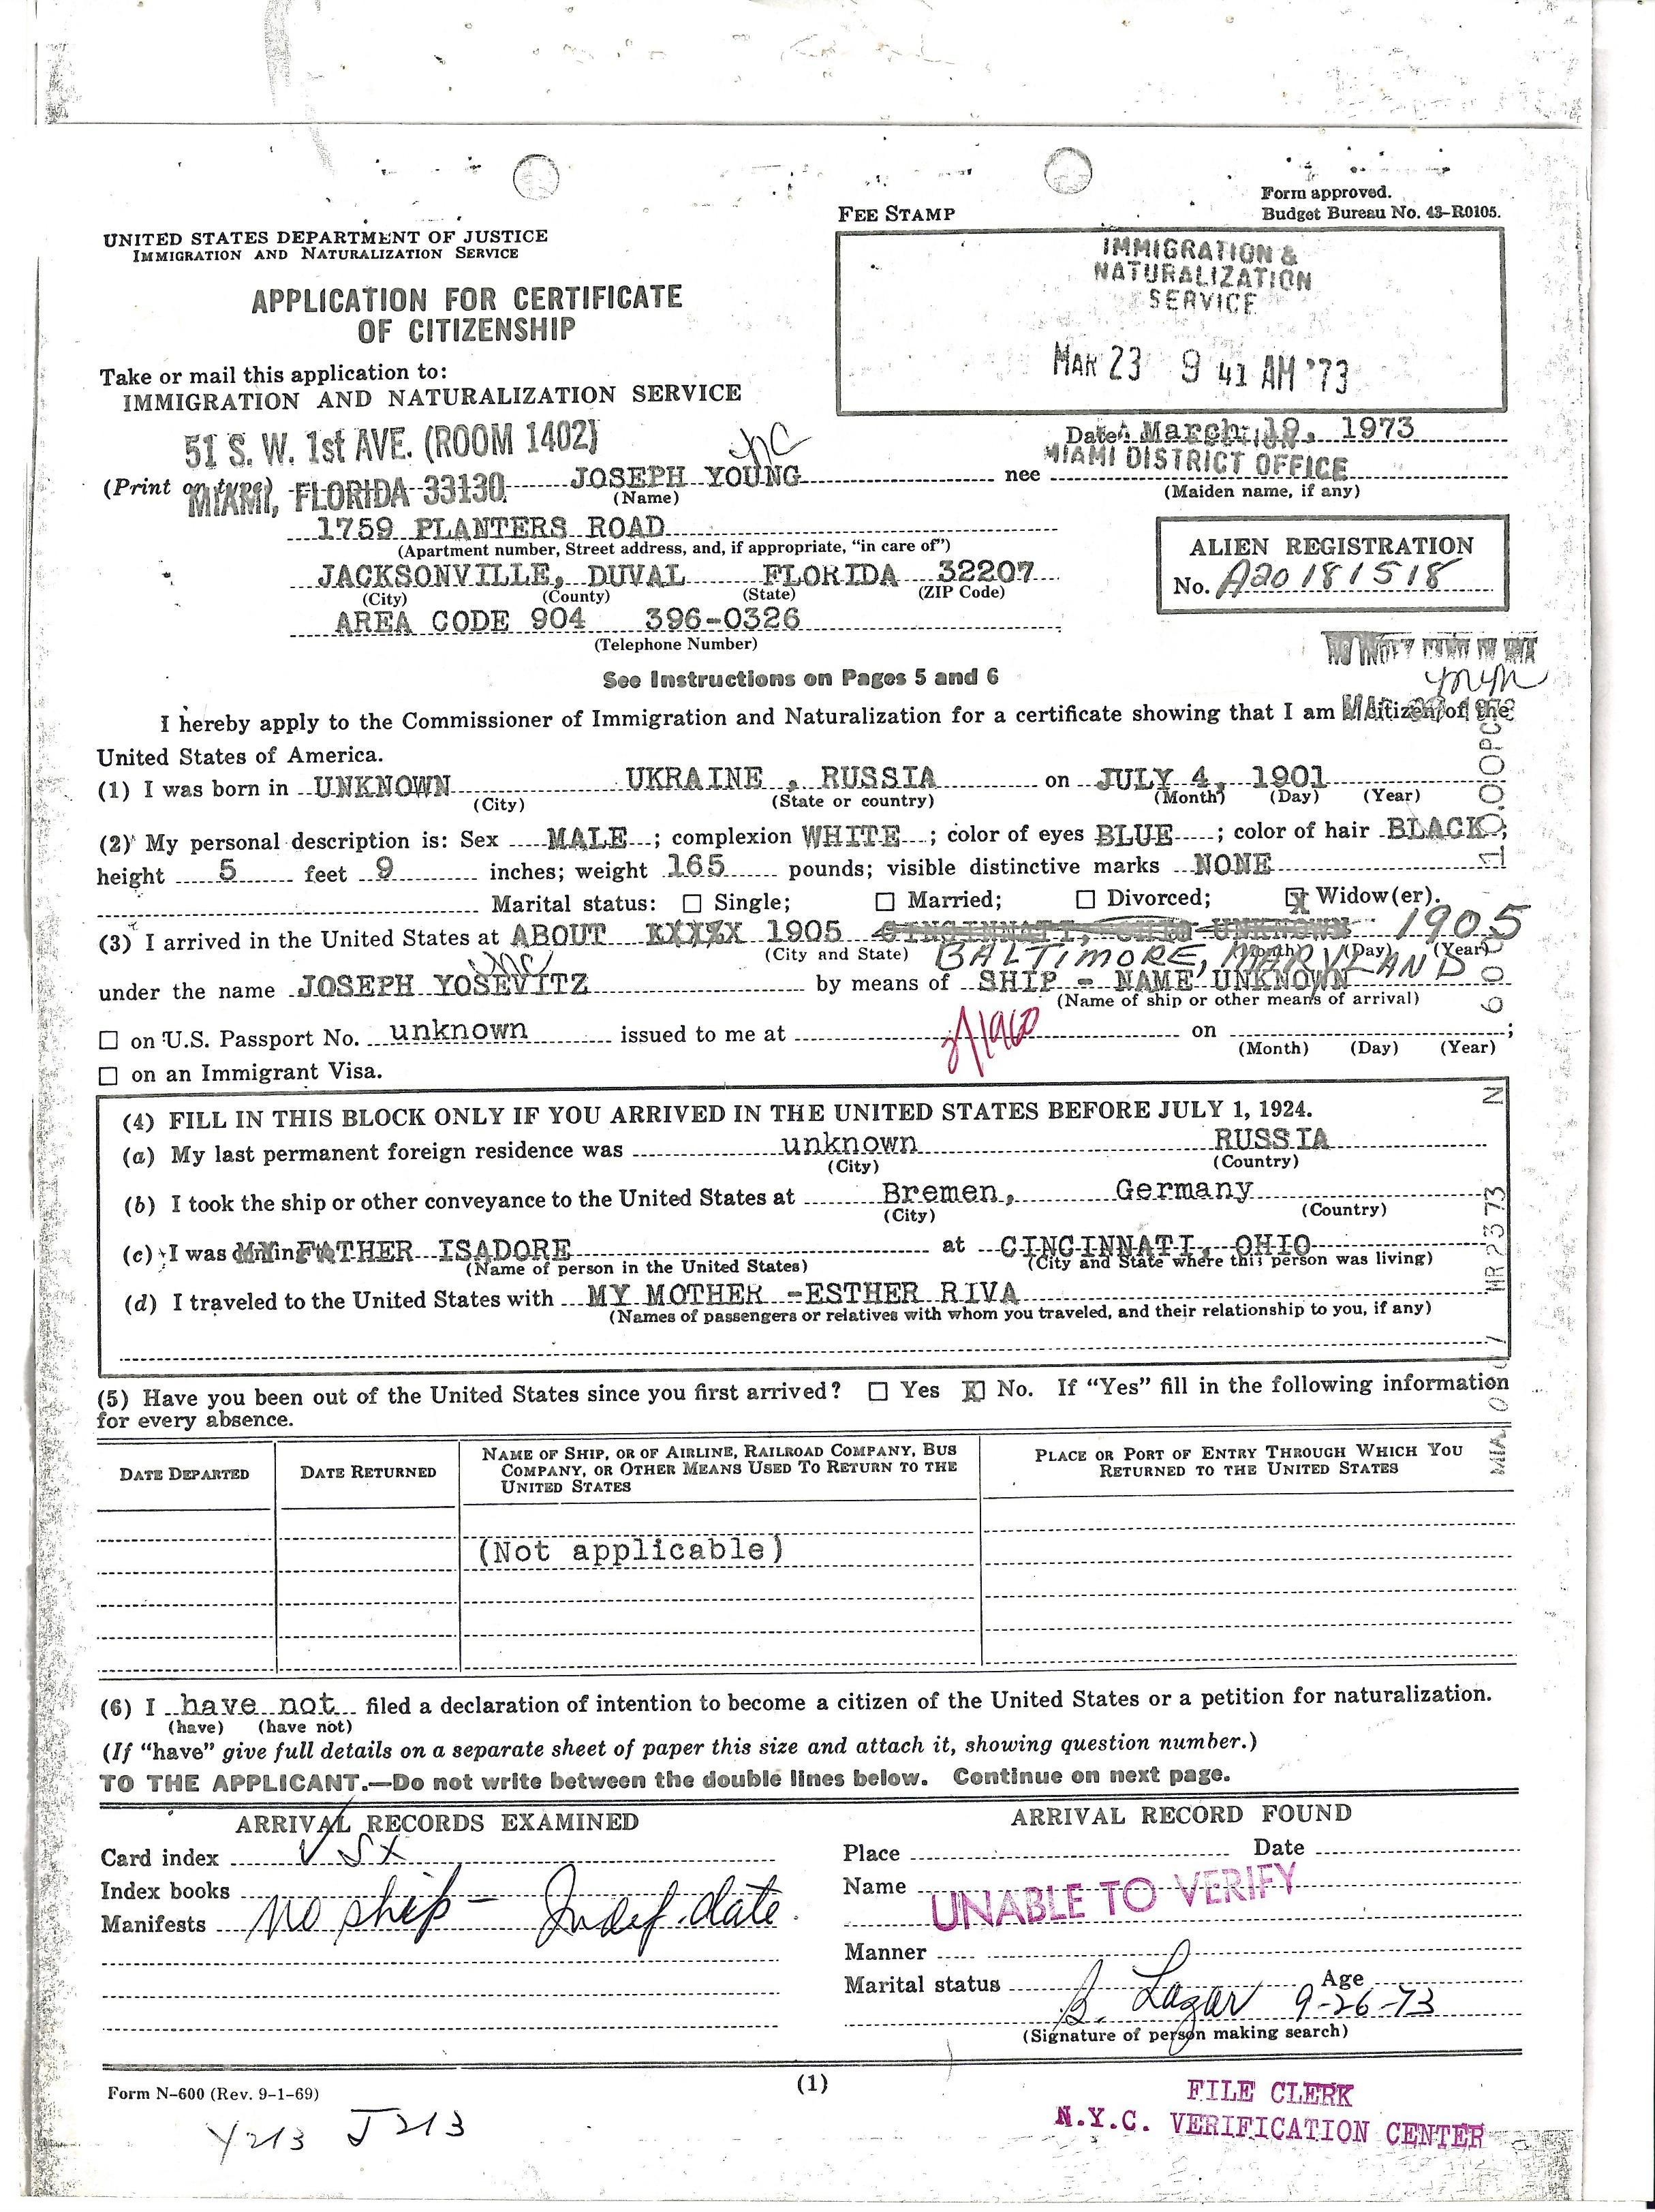 Form approved.
Budget Bureau No. 43-R0105.
FEE STAMP
UNITED STATES DEPARTMENT OF JUSTICE
IMMIGRATION AND NATURALIZATION SERVICE
IMMIGRATION &
NATURALIZATION
SERVICE
MAR 23 9 41 AM '73
APPLICATION FOR CERTIFICATE
OF CITIZENSHIP
Take or mail this application to:
IMMIGRATION AND NATURALIZATION SERVICE
51 S. W. 1st AVE. (ROOM 1402)
MIAMI, FLORIDA 33130
Date March 19, 1973
MIAMI DISTRICT OFFICE
(Print or type) JOSEPH YOUNG nee
(Name) (Maiden name, if any)
1759 PLANTERS ROAD
(Apartment number, Street address, and, if appropriate, "in care of")
JACKSONVILLE, DUVAL FLORIDA 32207
(City) (County) (State) (ZIP Code)
AREA CODE 904 396-0326
(Telephone Number)
ALIEN REGISTRATION
No. A20 181 518
See Instructions on Pages 5 and 6
I hereby apply to the Commissioner of Immigration and Naturalization for a certificate showing that I am a citizen of the
United States of America.
(1) I was born in UNKNOWN UKRAINE, RUSSIA on JULY 4, 1901
(City) (State or country) (Month) (Day) (Year)
(2) My personal description is: Sex MALE; complexion WHITE; color of eyes BLUE; color of hair BLACK;
height 5 feet 9 inches; weight 165 pounds; visible distinctive marks NONE
Marital status: Single; Married; Divorced; X Widow(er).
(3) I arrived in the United States at ABOUT XXXXX 1905 CINCINNATI, OHIO UNKNOWN 1905
(City and State) BALTIMORE, MARYLAND (Month) (Day) (Year)
under the name JOSEPH YOSEVITZ by means of SHIP - NAME UNKNOWN
(Name of ship or other means of arrival)
on U.S. Passport No. unknown issued to me at on ;
(Month) (Day) (Year)
on an Immigrant Visa.
(4) FILL IN THIS BLOCK ONLY IF YOU ARRIVED IN THE UNITED STATES BEFORE JULY 1, 1924.
(a) My last permanent foreign residence was unknown RUSSIA
(City) (Country)
(b) I took the ship or other conveyance to the United States at Bremen, Germany
(City) (Country)
(c) I was destined to MY FATHER ISADORE at CINCINNATI, OHIO
(Name of person in the United States) (City and State where this person was living)
(d) I traveled to the United States with MY MOTHER -ESTHER RIVA
(Names of passengers or relatives with whom you traveled, and their relationship to you, if any)
(5) Have you been out of the United States since you first arrived? Yes X No. If "Yes" fill in the following information
for every absence.
DATE DEPARTED
DATE RETURNED
NAME OF SHIP, OR OF AIRLINE, RAILROAD COMPANY, BUS
COMPANY, OR OTHER MEANS USED TO RETURN TO THE
UNITED STATES
PLACE OR PORT OF ENTRY THROUGH WHICH YOU
RETURNED TO THE UNITED STATES
(Not applicable)
(6) I have not filed a declaration of intention to become a citizen of the United States or a petition for naturalization.
(have) (have not)
(If "have" give full details on a separate sheet of paper this size and attach it, showing question number.)
TO THE APPLICANT.—Do not write between the double lines below. Continue on next page.
ARRIVAL RECORDS EXAMINED
Card index
Index books
Manifests no ship - Indef. date
ARRIVAL RECORD FOUND
Place Date
Name UNABLE TO VERIFY
Manner
Marital status Age
B. Lazar 9-26-73
(Signature of person making search)
Form N-600 (Rev. 9-1-69)
(1)
FILE CLERK
N.Y.C. VERIFICATION CENTER
Y213 J213